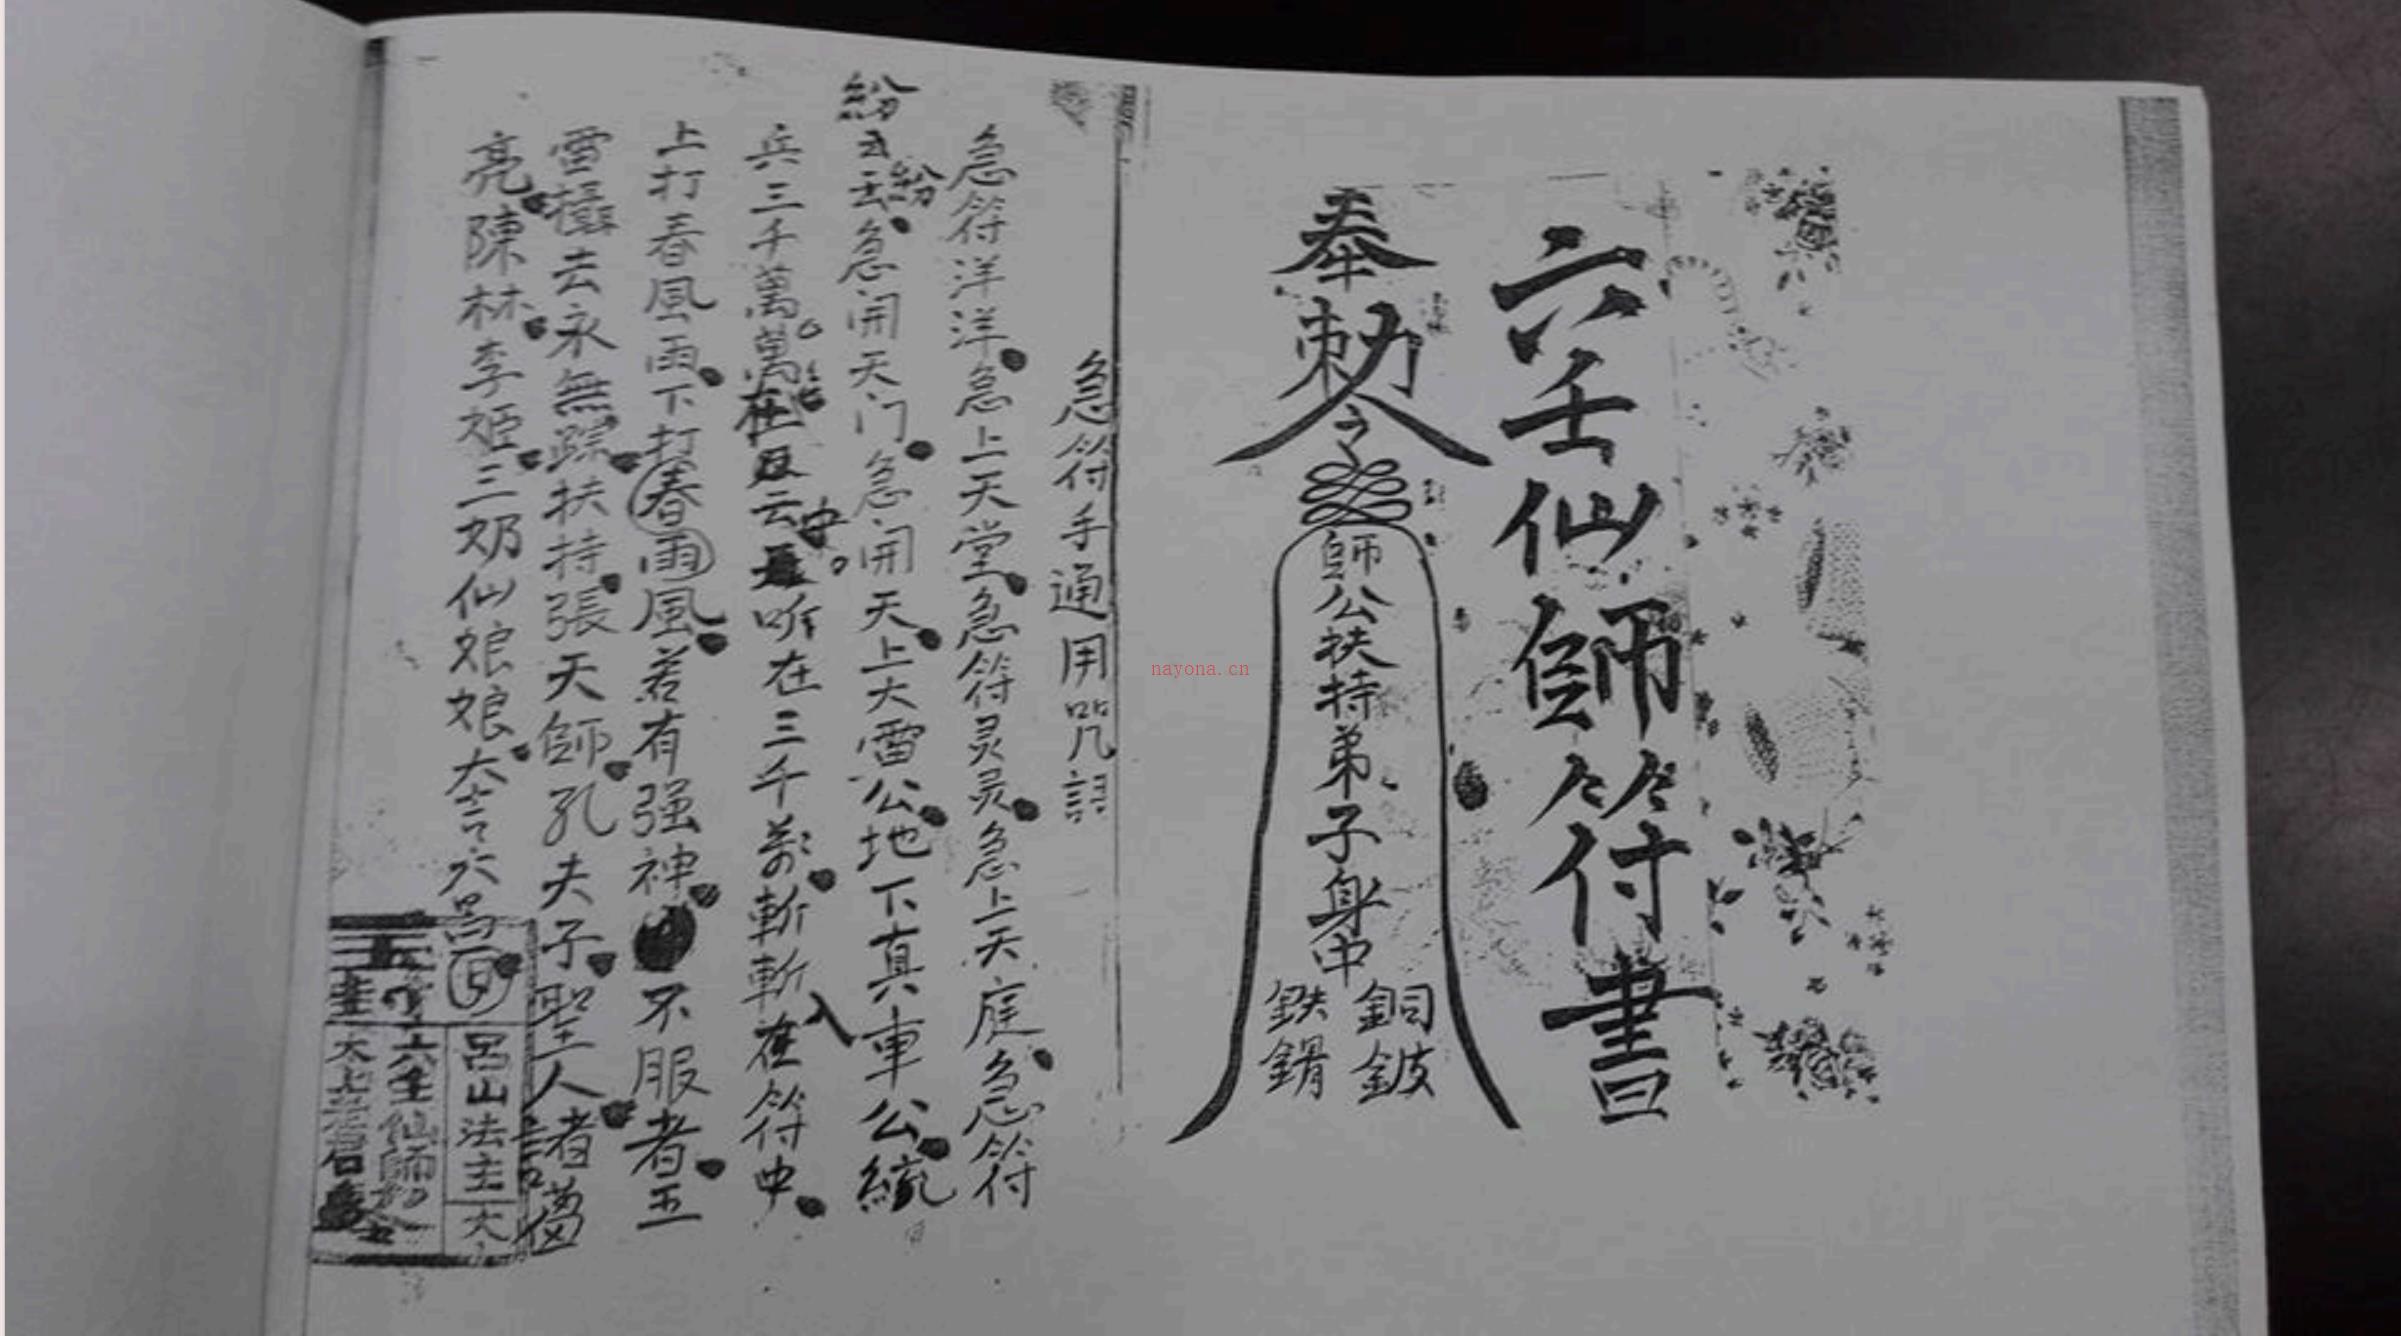 六壬仙師符書
奉勅令
師公扶持弟子身中
銅鈸
鉄
急符手通用咒語
急符洋洋急上天堂急符灵灵急上天庭急符
紛云云紛急開天门急開天上大雷公地下真車公統
兵三千萬萬在云中听在三千萬斬斬在符中
上打春風雨下打春雨風若有强神不服者五
雷攝去永無踪扶持張天師孔夫子聖人者
亮陳林李姫三奶仙娘娘大
呂山法主大
六壬仙師
太上老君
nayona.cn